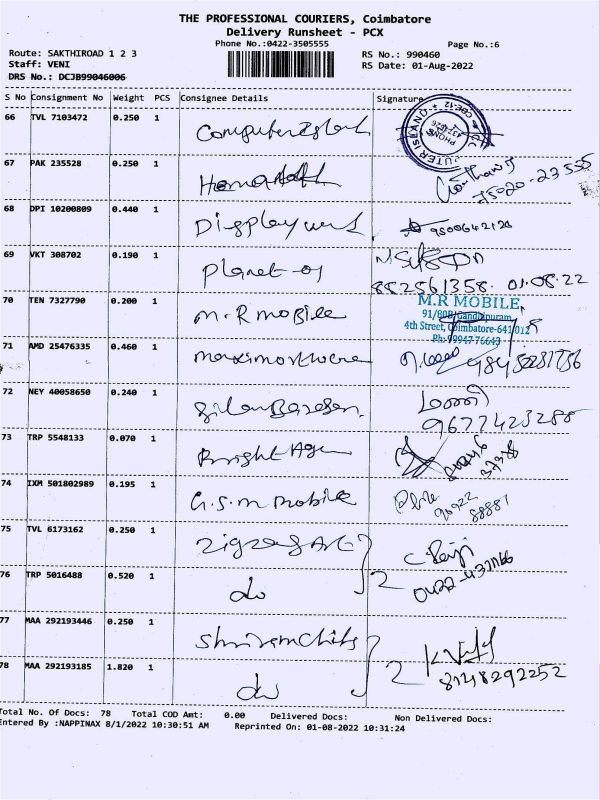 THE PROFESSIONAL COURIERS, Coimbatore
Delivery Runsheet - PCX
Phone No.:0422-3505555
Page No.:6
Route: SAKTHIROAD 1 2 3
RS No.: 990460
Staff: VENI
RS Date: 01-Aug-2022
DRS No.: DCJB99046006
S No Consignment No Weight PCS Consignee Details Signature
66 TVL 7103472 0.250 1 Computer Island
67 PAK 235528 0.250 1
68 DPI 10200809 0.440 1 9500642120
69 VKT 308702 0.190 1 Planet-09
882561358. 01.08.22
70 TEN 7327790 0.200 1 M.R mobile
M.R MOBILE,
91/80B, Gandhipuram,
4th Street, Coimbatore-641 012
Ph: 99947 76643
71 AMD 25476335 0.460 1
72 NEY 40058650 0.240 1 மணி
9677423288
73 TRP 5548133 0.070 1
74 IXM 501802989 0.195 1 G.S.M Mobile
90922
88881
75 TVL 6173162 0.250 1 Zigzag Art
76 TRP 5016488 0.520 1 do 2
77 MAA 292193446 0.250 1 Shriram Chits
78 MAA 292193185 1.820 1 do 2
8148292252
Total No. Of Docs: 78 Total COD Amt: 0.00 Delivered Docs: Non Delivered Docs:
Entered By :NAPPINAX 8/1/2022 10:30:51 AM Reprinted On: 01-08-2022 10:31:24